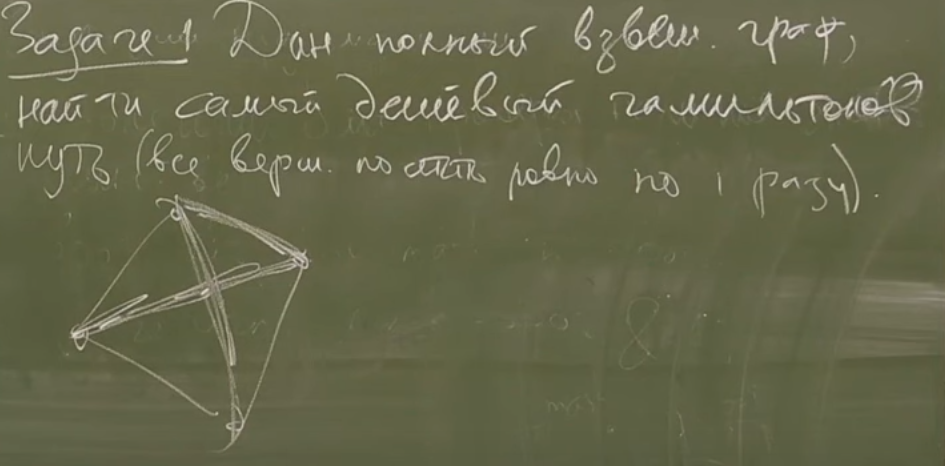 Задача 1 Дан полный взвеш. граф,
найти самый дешёвый гамильтонов
путь (все верш. посетить ровно по 1 разу).